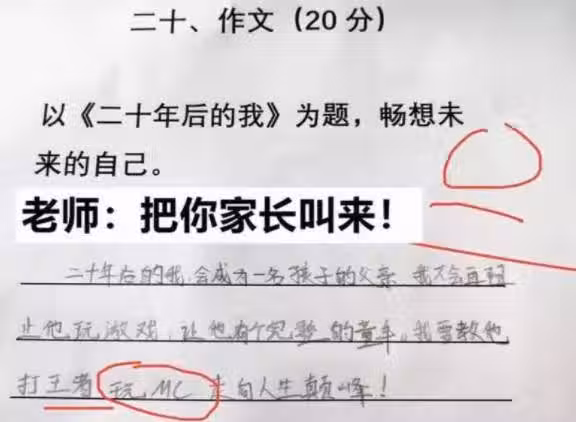 二十、作文（20 分）
以《二十年后的我》为题，畅想未
来的自己。
老师：把你家长叫来！
二十年后的我，会成为一名孩子的父亲，我不会再阻
止他玩游戏，让他有个完整的童年，我要教他
打王者 玩MC 走向人生巅峰！